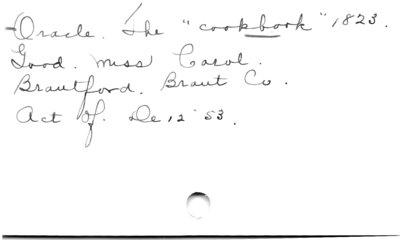 Oracle. The "cookbook" 1823.
Good. Miss Carol.
Brantford. Brant Co.
Act of. De 12 53.